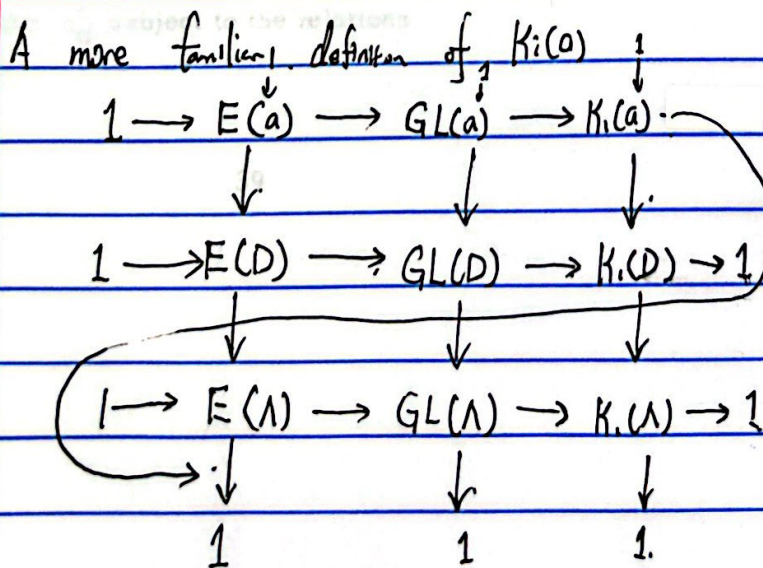 A more familiar definition of K₁(a)
1 1 1
1 → E(a) → GL(a) → K₁(a)
1 → E(D) → GL(D) → K₁(D) → 1
1 → E(Λ) → GL(Λ) → K₁(Λ) → 1
1 1 1.